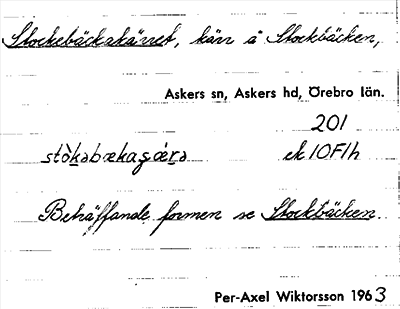 Stockebäckakärret, kärr å Stockbäcken,
Askers sn, Askers hd, Örebro län.
201
stòkəbækaʂæ̀rə ek 10F1h
Beträffande formen se Stockbäcken.
Per-Axel Wiktorsson 1963